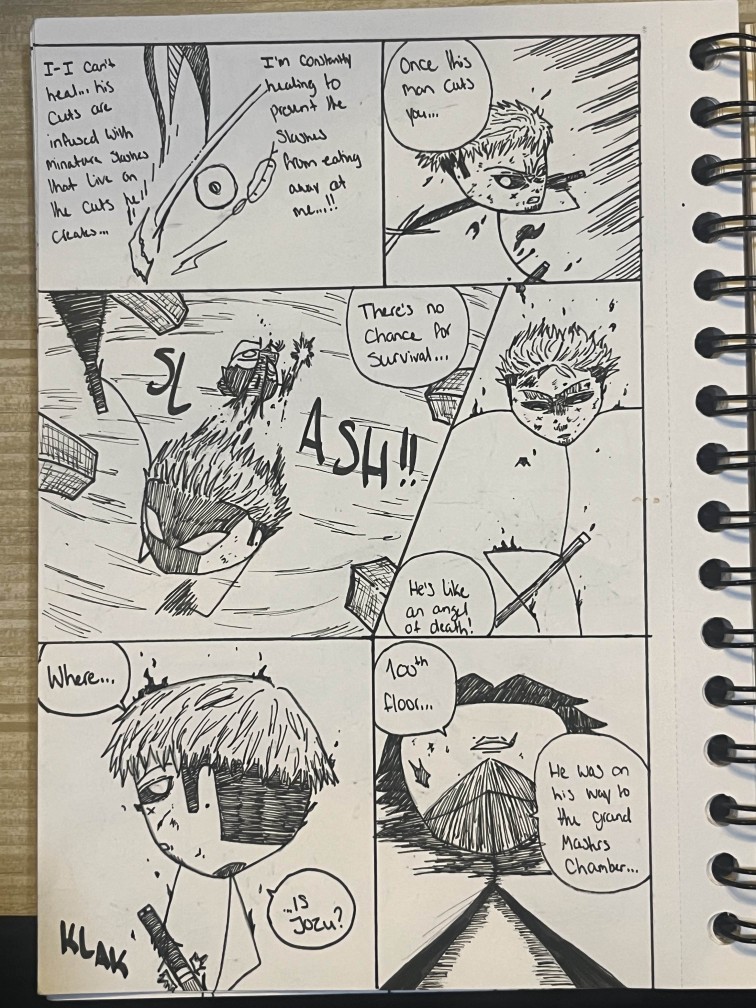 I-I can't
heal... his
cuts are
infused with
minature slashes
that live on
the cuts he
creates...
I'm constantly
healing to
prevent the
slashes
from eating
away at
me...!!
Once this
man cuts
you...
There's no
chance for
survival...
SL
ASH!!
He's like
an angel
of death!
Where...
...is
Jozu?
KLAK
100th
floor...
He was on
his way to
the grand
Mashrs
Chamber...